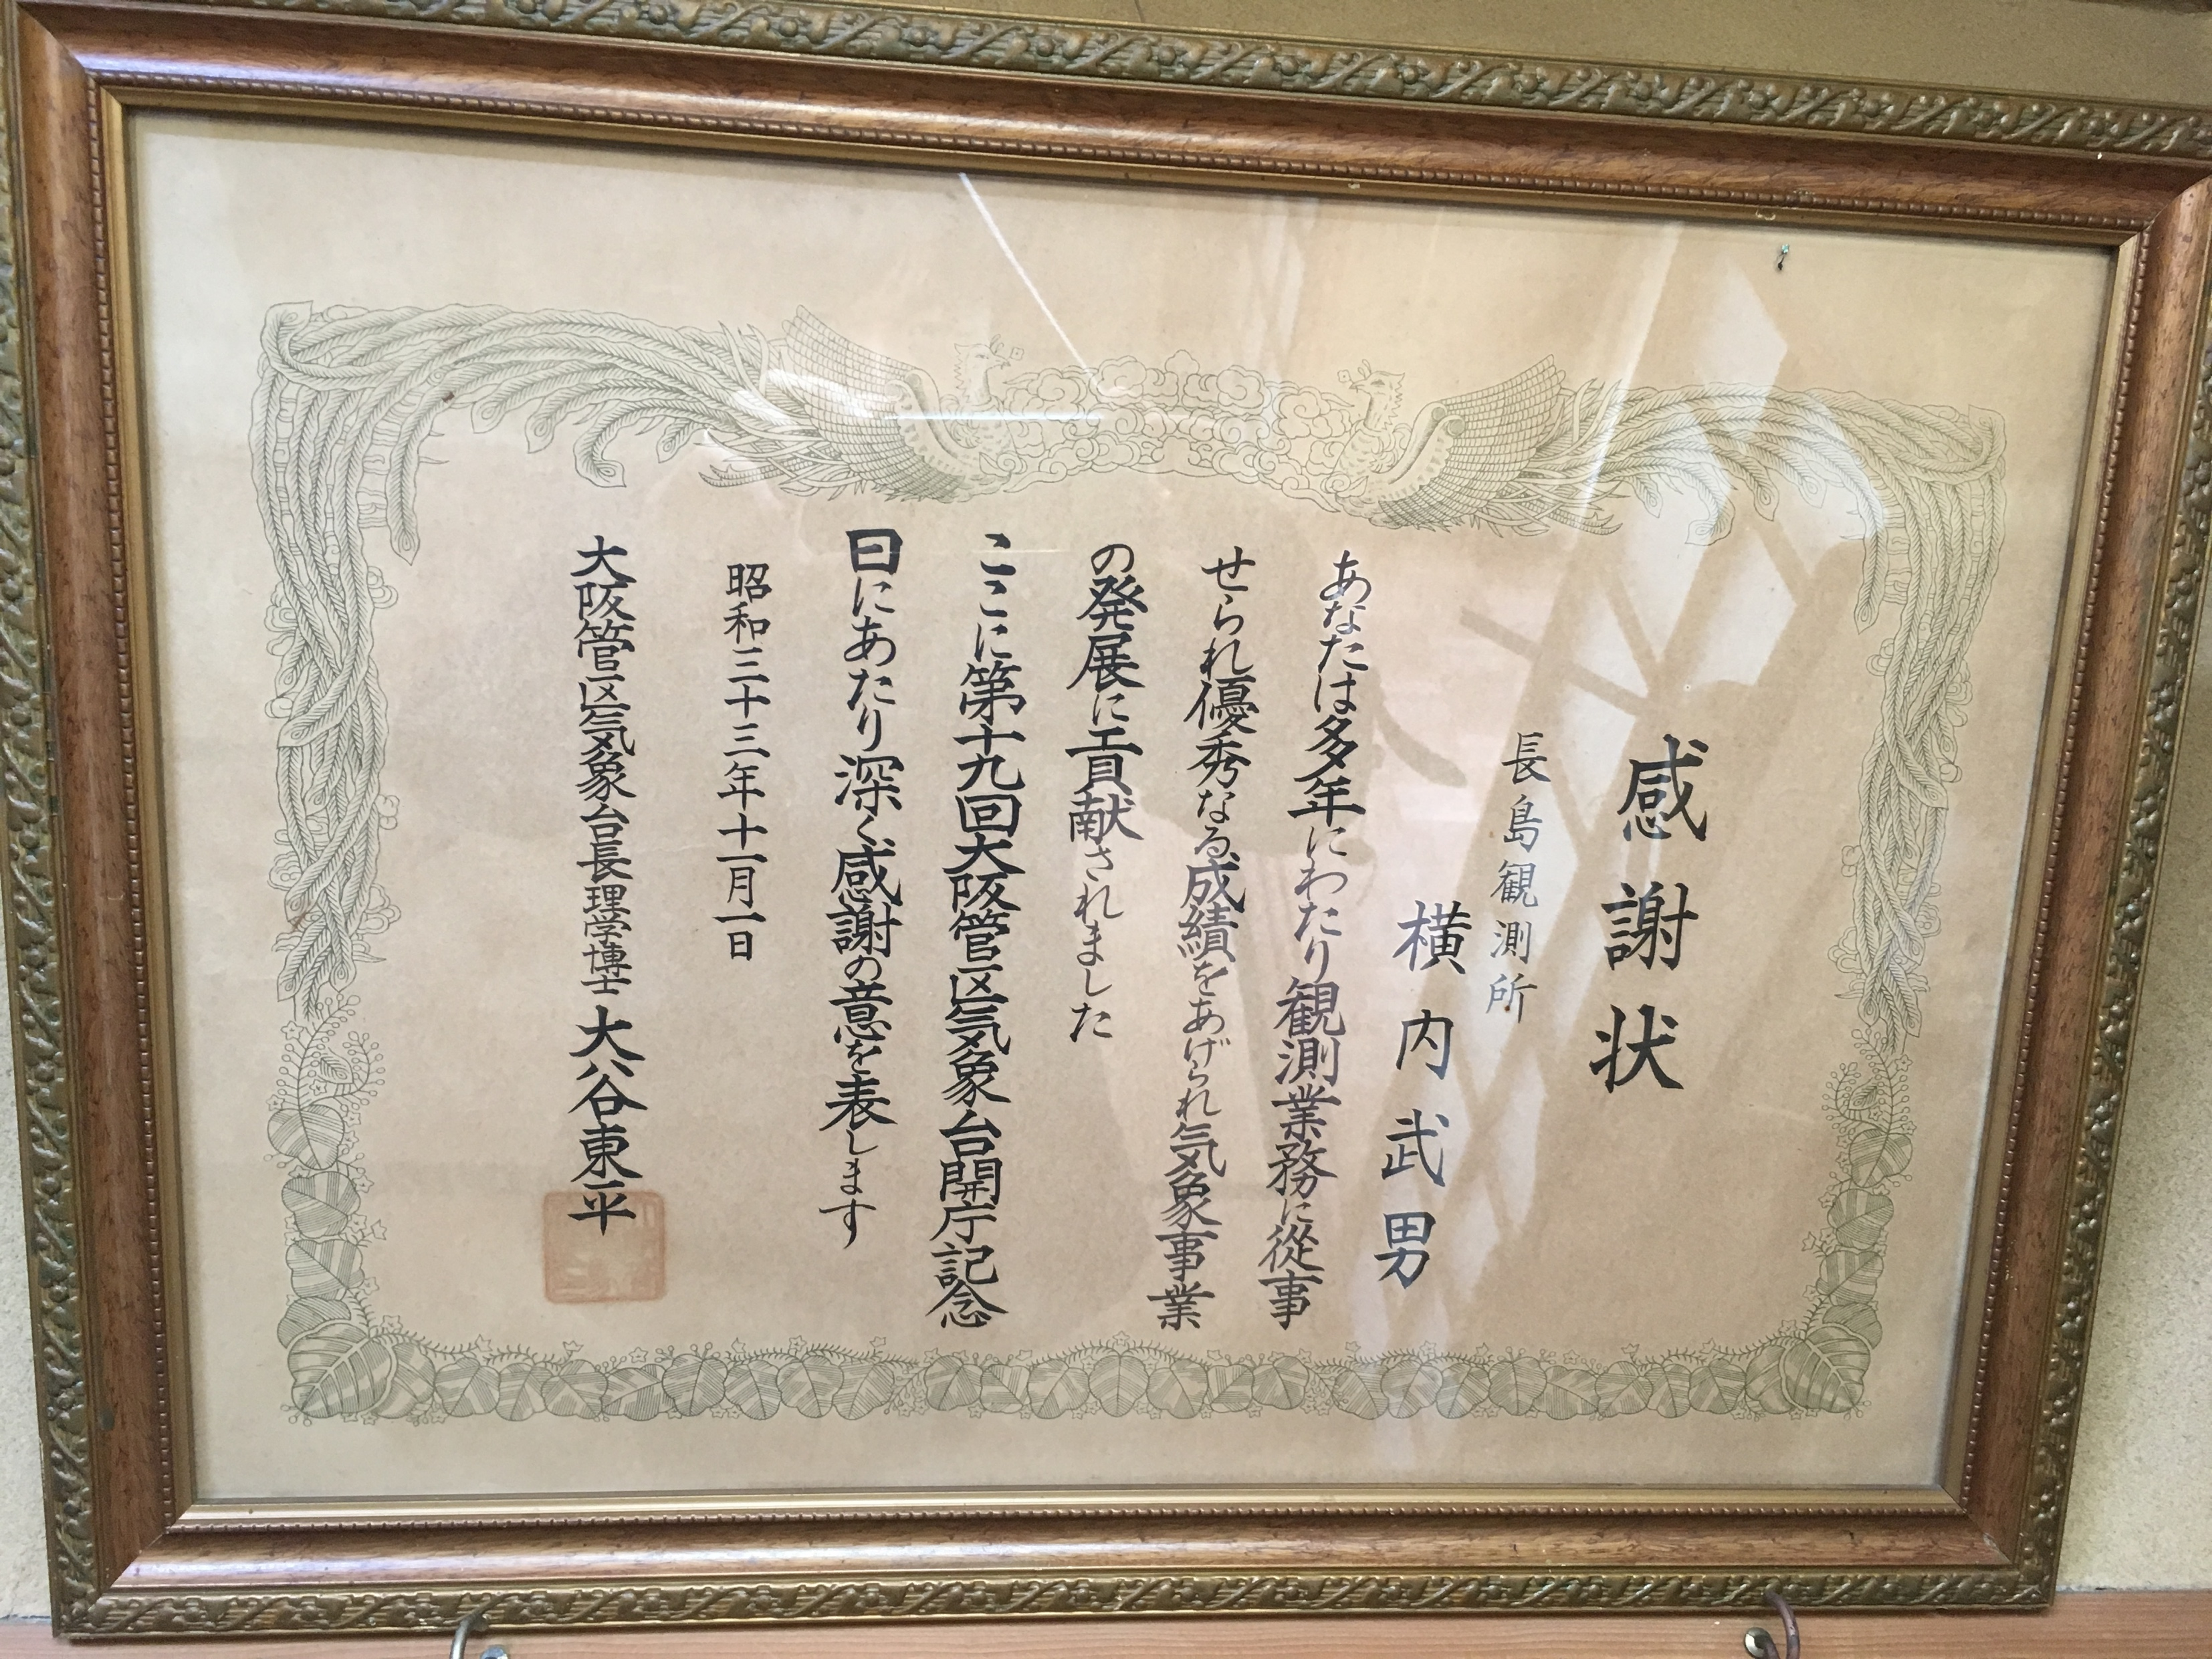 感謝状
長島観測所
横内武男
あなたは多年にわたり観測業務に從事
せられ優秀なる成績をあげられ気象事業
の発展に貢献されました
ここに第十九回大阪管区気象台開庁記念
日にあたり深く感謝の意を表します
昭和三十三年十一月一日
大阪管区気象台長理学博士大谷東平